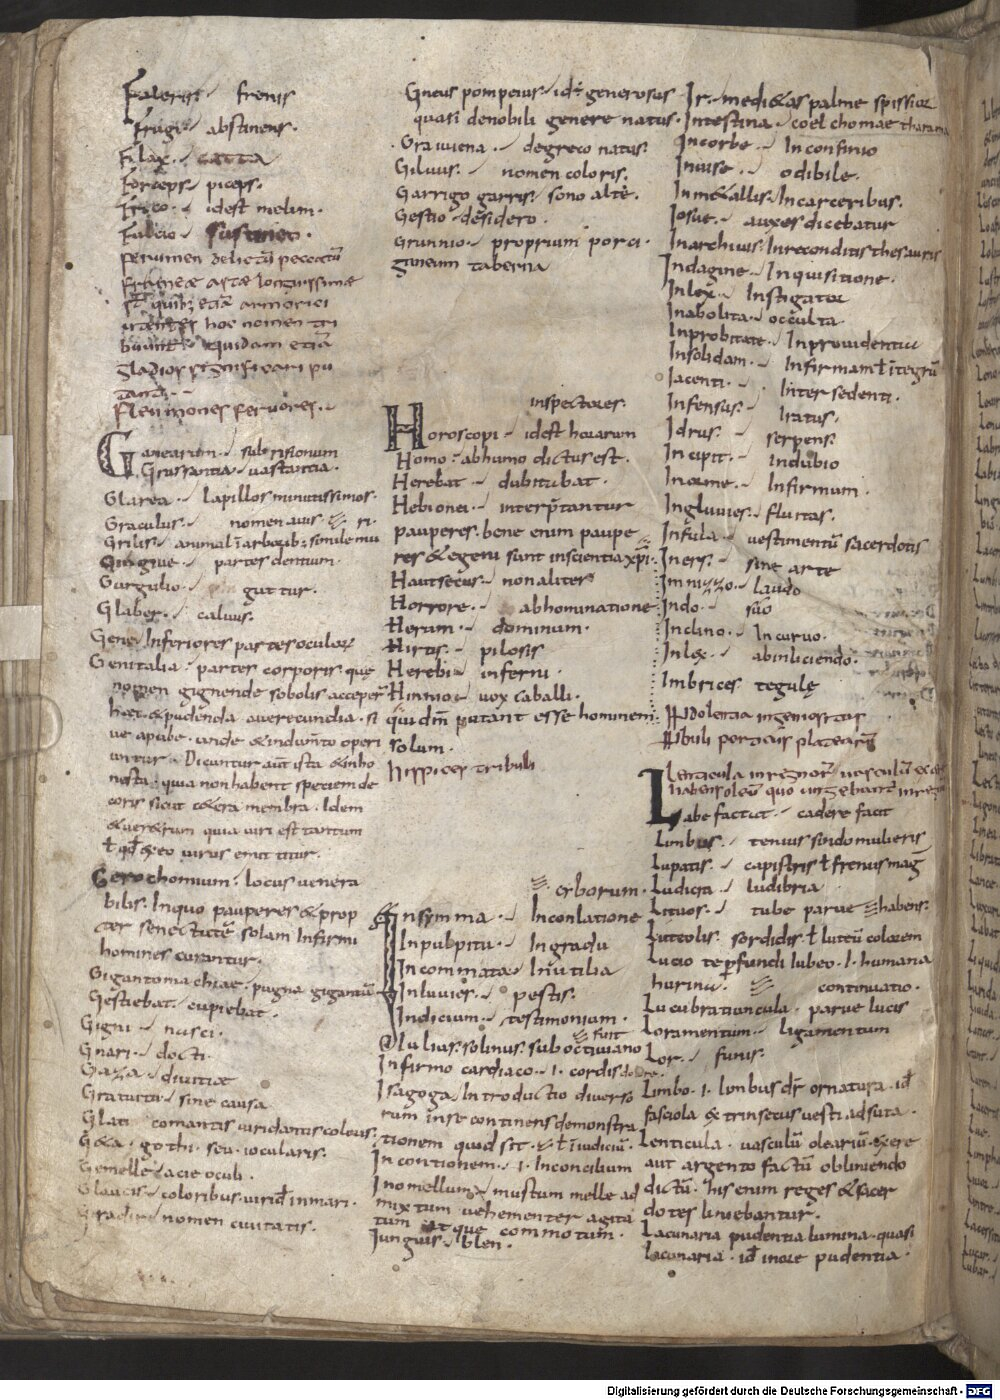 Faleris · frenis
Frugi · abstinens ·
Filax · catta
Forceps · piceps ·
Frico · idest melim ·
Fulcio · sustineo ·
ferumen delictū peccatū
frameae astae longissimae
st̄ quib; etiā armorici
utentes hoc nomen tri
buunt · quidam etiā
gladios significari pu
tant ·
fleumones fervores ·
Ganearum · subrisionum
Grassantia · vastantia ·
Glarea · lapillos minutissimos ·
Graculus · nomen avis · ri ·
Grilis · animal ī arborib; simile mu
Gingive · partes dentium ·
Gurgulio · guttur ·
Glaber · calvus ·
Gene · Inferiores partes oculor
Genitalia · partes corporis que
nomen gignende sobolis acceper
hęc & pudenda a verecundia · si
ve a pube · unde & indumto operi
untur · Dicuntur aut ista & inho
nesta · quia non habent speciem de
coris sicut c&era membra · Idem
& ver&rum quia viri est tantum
ł qd̄ ex eo virus emittitur ·
Gerochomium · locus venera
bilis · In quo pauperes & prop
ter senectutē solam Infirmi
homines curantur ·
Gigantomachiae · pugna gigantū
Gestiebat · cupiebat ·
Gigni · nasci ·
Gnari · docti ·
Gaza · divitiae
Gratuitu · sine causa
Glauci comantis viridantis coloris ·
G&a · gothi · seu · iocularis ·
Gemelle · acie oculi ·
Glaucis · coloribus · virid̄ in mari ·
nomen civitatis ·
Gneus pompeius · id÷ generosus
quasi de nobili genere natus ·
Graiugena · de greco natus ·
Gilvus · nomen coloris ·
Garrigo garris · sono alte ·
Gestio · desidero ·
Grunnio · proprium porci ·
gineum taberna
inspectores ·
Horoscopi · idest horarum
Homo · ab humo dictus est ·
Herebat · dubitabat ·
Hebionei · interp̄tantur
pauperes · bene enim paupe
res & egeni sunt in scientia xp̄i ·
Haut secus · non aliter
Horrore · abhominatione ·
Herum · dominum ·
Hirtis · pilosis
Herebi · inferni ·
Hinnio · vox caballi ·
quidam putant esse hominem
solum ·
hispices tribuli
erborum ·
In symma · In conlatione
In pulpitu · In gradu
In commata · Inutilia
In luvies · pestis ·
Indicium · testimonium ·
fuit
Iulias · solinus · sub octiviano
Infirmo cardiaco · i · cordis dolore
Isagoga · Introductio diverso
rum in se continens demonstra
tionem quod sit · ł iudiciū ·
In contionem · i · In concilium
Inomellum · mustum melle ad
mixtum vehementer agita
tum atque commotum ·
Iunguis · blen ·
Ir · medi&as palme spissior
Intestina · coel chomae tharama
In corbe · In confinio
Invise · odibile ·
In m&allis · In carceribus ·
Iosue · auxes dicebatur
In archivis · In reconditis thesauris
Indagine · Inquisitione ·
Inlex · Instigator
In abolita · occulta
Inprobitate · Inprovidentia
Insolidam · Infirmam ł īn tegrū
Iacenti · Inter sedenti ·
Infensus · Iratus ·
Idrus · serpens ·
Incipit · In dubio
Inerme · Infirmum ·
Ingluvies · fluctas ·
Infula · vestimentū sacerdotis
Iners · sine arte
Imnizzo · laudo
Indo · suo
Inclino · Incurvo ·
Inlex · ab inliciendo ·
Imbrices tegulę
Indolentia ingeniositas
Lenticula in regnor vasculū ex ere
habens oleū quo ungebant in regno
Labefactat · cadere facit
Limbus · tenuis sindo mulieris
Lupatis · capistris ł frenis mag
Ludicra · ludibria
Lituos · tube parve habens ·
Luteolis · sordidis ł luteū colorem
Lucio te p̄fundi iubeo · i · humana
hurina · continuatio ·
Lucubratiuncula · parve lucis
Loramentum · ligamentum
Lor · funis ·
Limbo · i · limbus dr̄ ornatura · id
fasciola extrinsecus vesti adsuta ·
Lenticula · vasculū olearū ex ere
aut argento factū obliniendo
dictū · his enim reges & sacer
dotes liniebantur ·
Lacunaria pudentia lumina · quasi
lacunaria · id in aere pudentia ·
Digitalisierung gefördert durch die Deutsche Forschungsgemeinschaft - DFG